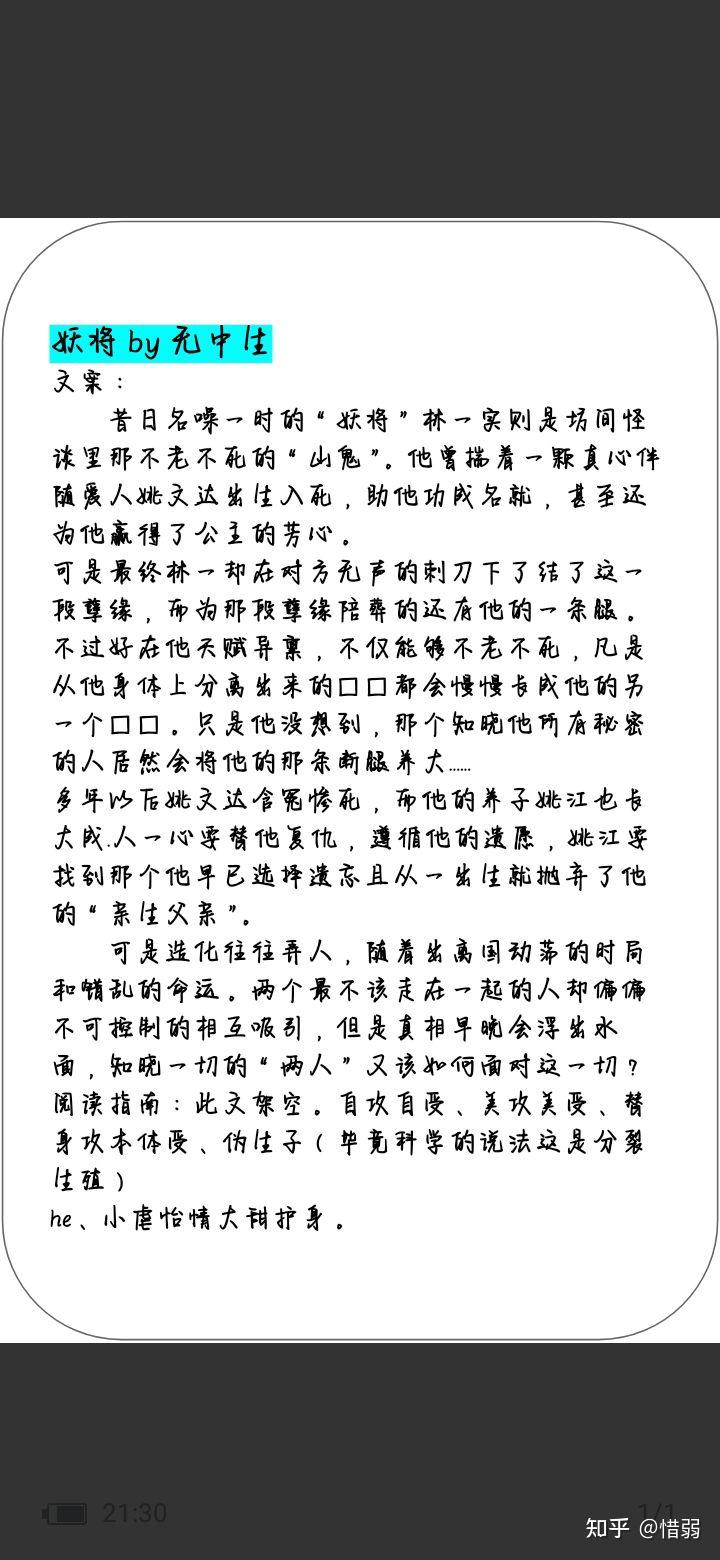 妖将 by 无中生
文案：
昔日名噪一时的“妖将”林一实则是坊间怪
谈里那不老不死的“山鬼”。他曾揣着一颗真心伴
随爱人姚文达出生入死，助他功成名就，甚至还
为他赢得了公主的芳心。
可是最终林一却在对方无声的刺刀下了结了这一
段孽缘，而为那段孽缘陪葬的还有他的一条腿。
不过好在他天赋异禀，不仅能够不老不死，凡是
从他身体上分离出来的□□都会慢慢长成他的另
一个□□。只是他没想到，那个知晓他所有秘密
的人居然会将他的那条断腿养大……
多年以后姚文达含冤惨死，而他的养子姚江也长
大成.人一心要替他复仇，遵循他的遗愿，姚江要
找到那个他早已选择遗忘且从一出生就抛弃了他
的“亲生父亲”。
可是造化往往弄人，随着出离国动荡的时局
和错乱的命运。两个最不该走在一起的人却偏偏
不可控制的相互吸引，但是真相早晚会浮出水
面，知晓一切的“两人”又该如何面对这一切？
阅读指南：此文架空。自攻自受、美攻美受、替
身攻本体受、伪生子（毕竟科学的说法这是分裂
生殖）
he、小虐怡情大甜护身。
21:30
1/1
知乎 @惜弱